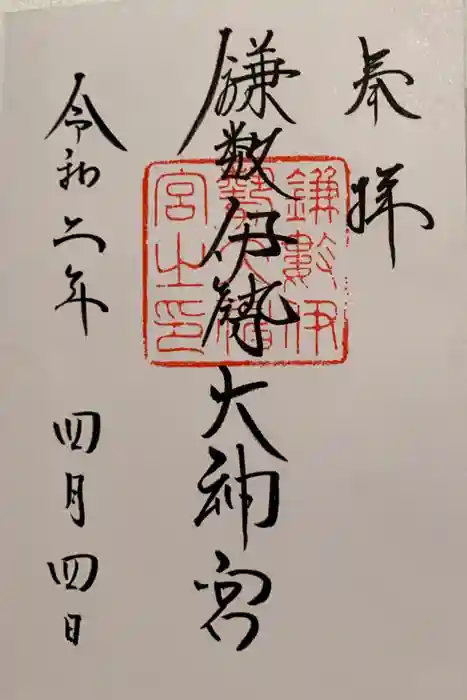 奉拝
鎌数伊勢大神宮
鎌數伊
勢大神
宮之印
令和六年 四月四日